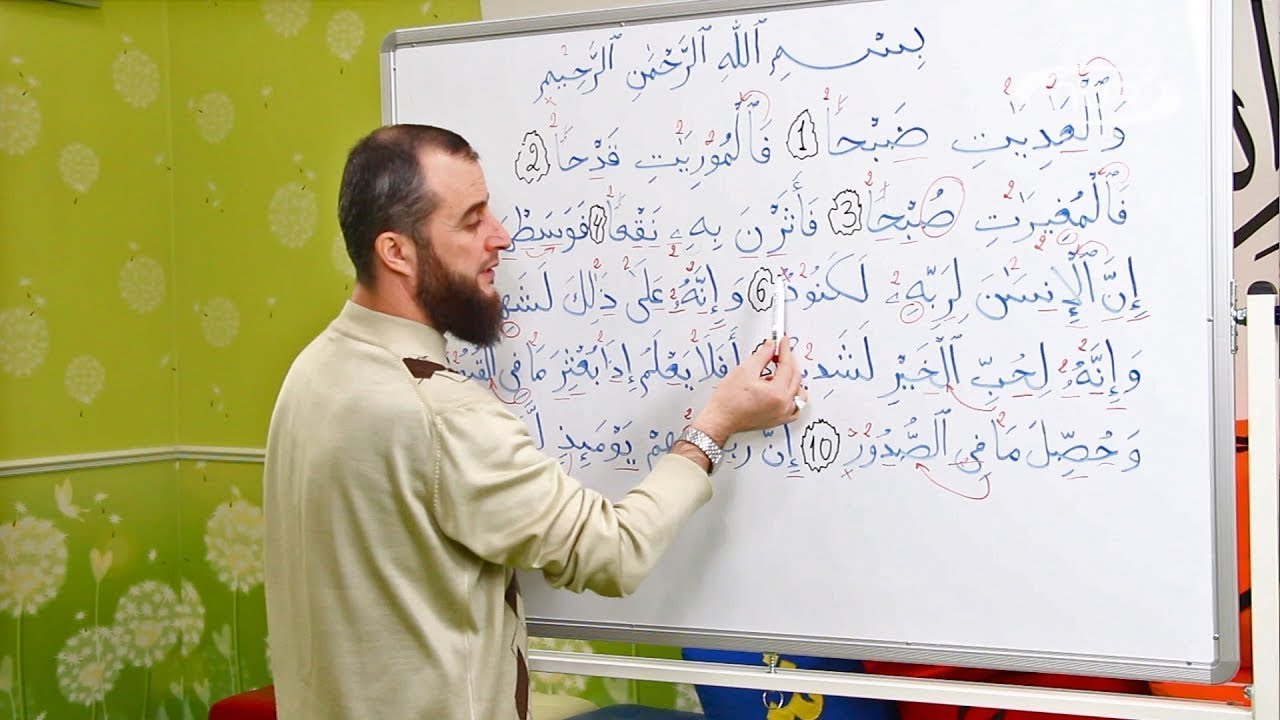 بِسْمِ ٱللَّهِ ٱلرَّحْمَٰنِ ٱلرَّحِيمِ
وَٱلْعَٰدِيَٰتِ ضَبْحًا 1 فَٱلْمُورِيَٰتِ قَدْحًا 2
فَٱلْمُغِيرَٰتِ صُبْحًا 3 فَأَثَرْنَ بِهِۦ نَقْعًا 4
إِنَّ ٱلْإِنسَٰنَ لِرَبِّهِۦ لَكَنُودٌ 6 وَإِنَّهُۥ عَلَىٰ ذَٰلِكَ
وَإِنَّهُۥ لِحُبِّ ٱلْخَيْرِ لَشَدِيدٌ أَفَلَا يَعْلَمُ إِذَا بُعْثِرَ مَا فِي ٱلْقُبُورِ
وَحُصِّلَ مَا فِي ٱلصُّدُورِ 10 إِنَّ رَبَّهُم يَوْمَئِذٍ